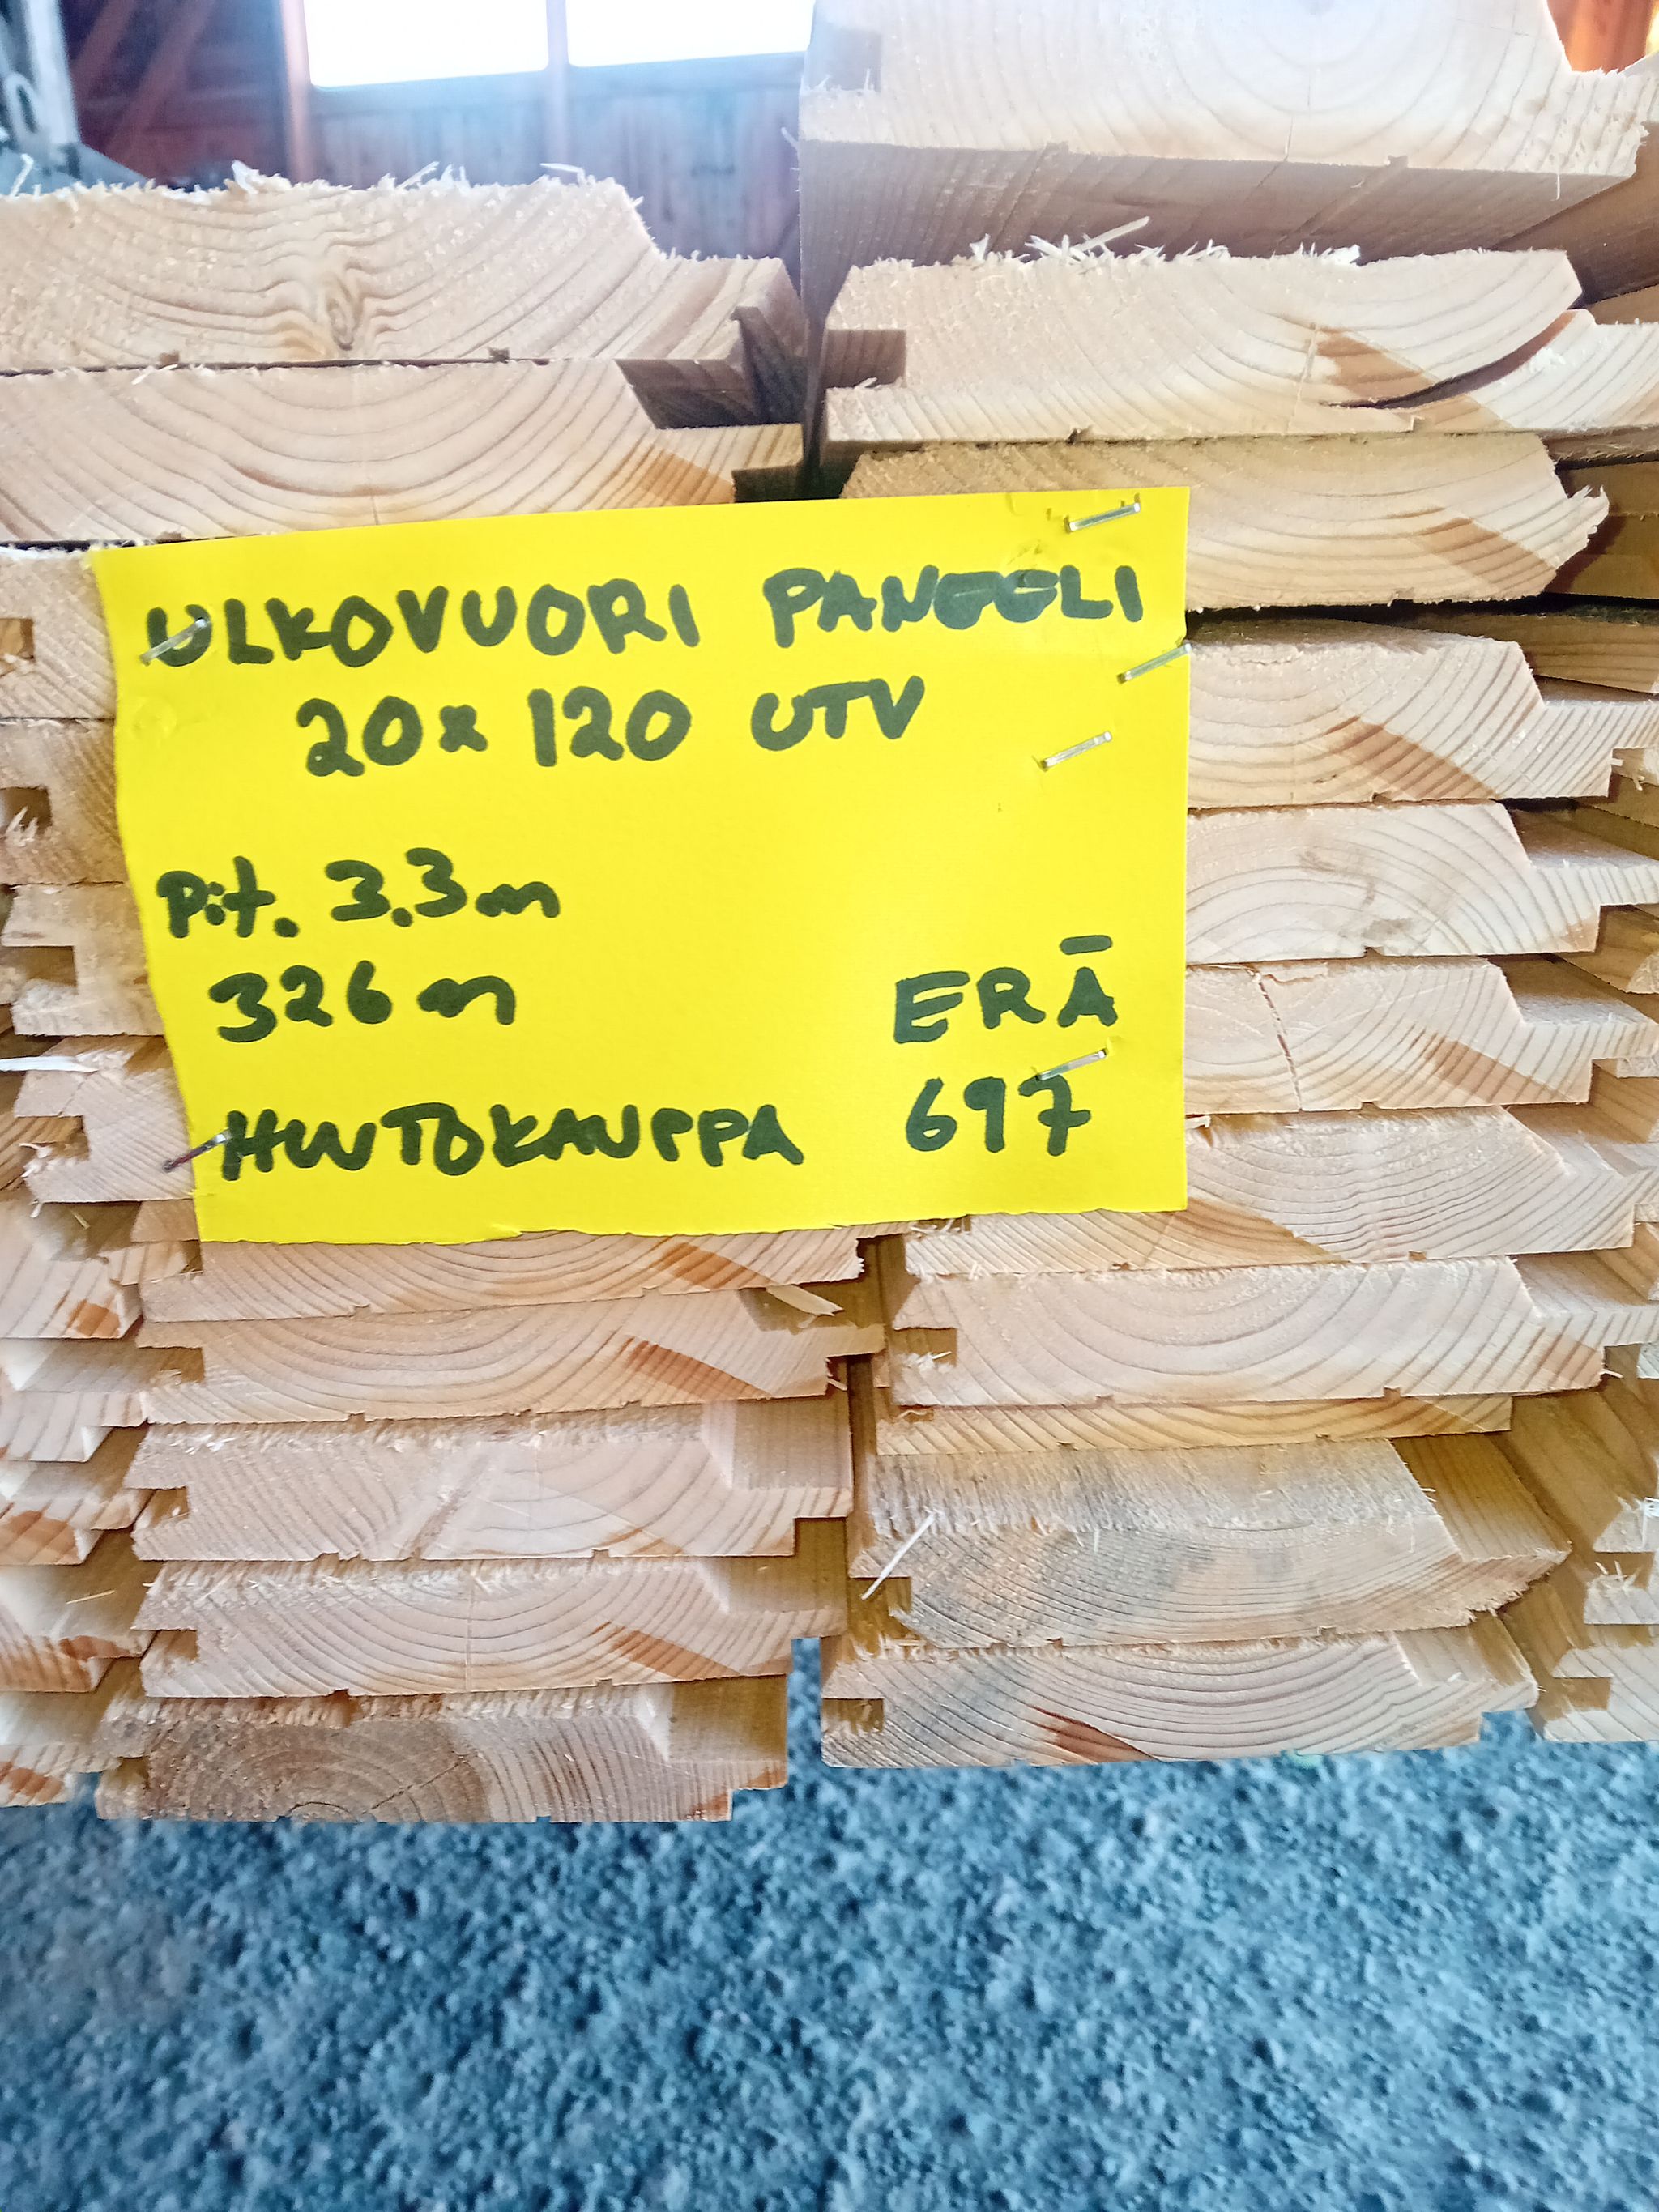 ULKOVUORI PANEELI
20x120 UTV
Pit. 3.3m
326m
ERÄ
HUUTOKAUPPA 697